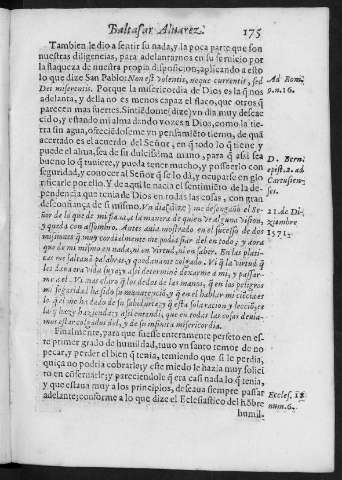 Baltasar Alvarez. 175
Tambien le dio a sentir su nada, y la poca parte que son
nuestras diligencias, para adelantarnos en su seruicio por
la flaqueza de nuestra propia disposicion, aplicando a esto
lo que dize San Pablo: Non est volentis, neque currentis, sed
Dei miserentis. Porque la misericordia de Dios es la que nos
adelanta, y della no es menos capaz el flaco, que otros que
parecen mas fuertes. Sintiẽdome (dize) vn dia muy deseca-
cido, y estando mi alma dando vozes a Dios, como la tie-
rra sin agua, ofreciòseme vn pensamiẽto tierno, de quã
acertado es el acuerdo del Señor, en que todo lo que tiene y
puede el alma, sea de su dulcissima mano, para que assi sea
bueno lo que tuuiere, y pueda tener mucho, y posseerlo con
seguridad, y conocer al Señor que se lo dà, y ocuparse en glo
rificarle por ello. Y de aqui le nacia el sentimiẽto de la de-
pendencia que tenia de Dios en todas las cosas, con gran
desconfiança de si mismo. Vn dia (dize) me desengañò el Se-
ñor de lo que de mi fiaua, a la manera de quien vè alguna vision,
y queda con assombro. Antes auia mostrado en el sucesso de dos
missas que muy cordialmente me podia fiar del en todo; y aora
que de mi mismo en nada, ni en virtud, ni en saber. En las plati-
cas me faltauã palabras, y quedaua
les daua era vida suya; y assi determinè dexarme a mi, y passar-
me a el. Vi mas claro que los dedos de las manos, que en los peligros
mi seguridad ha sido su
lo que me ha dado de su sabiduria;
mos estar colgados del, y de su infinita misericordia.
Finalmente, para que fuesse enteramente perfeto en es-
te primer grado de humildad, tuuo vn santo temor de no
pecar, y perder el bien que tenia, temiendo que si le perdia,
quiça no podria cobrarle; y este miedo le hazia muy solici
to en cõseruarle; y pareciendole que era casi nada lo que tenia,
y que estaua muy a los principios, deseaua siempre passar
adelante; conforme a lo que dize el Eclesiastico del hõbre
humil-
Ad Rom.
9. n. 16.
D. Bern.
epist. 2. ad
Cartusien-
ses.
21. de Di-
ziembre
1571.
Eccles. 18
num. 6.